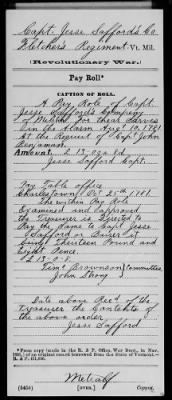 Capt. Jesse Safford's Co.
Fletcher's Regiment Vt. Mil.
(Revolutionary War.)
Pay Roll*
CAPTION OF ROLL.
A Pay Role of Capt.
Jesse Safford's Company
of Militia for their Servis
in the Alarm Augt 10, 1781
at the Request of Capt John
Benjaman.
Amount £13. 0s. 8d
Jesse Safford Capt.
Pay Table office
Charlestown Oct 25th 1781.
The within Pay Role
Examined and approved
the Treasurer is Directed to
Pay the Same to Capt Jesse
Safford or Bearer it
being Thirteen Pound and
Eight Pence.
£13-0-8.
Timo Brownson Committee
John Strong
Date above Recd of the
Treasurer the Contents of
the above order
Jesse Safford
*From copy made in the R. & P. Office, War Dept., in
of an original record borrowed from the State of Vermont.
R. & P.
Metcalf
(545i) [OVER.] Copyist.